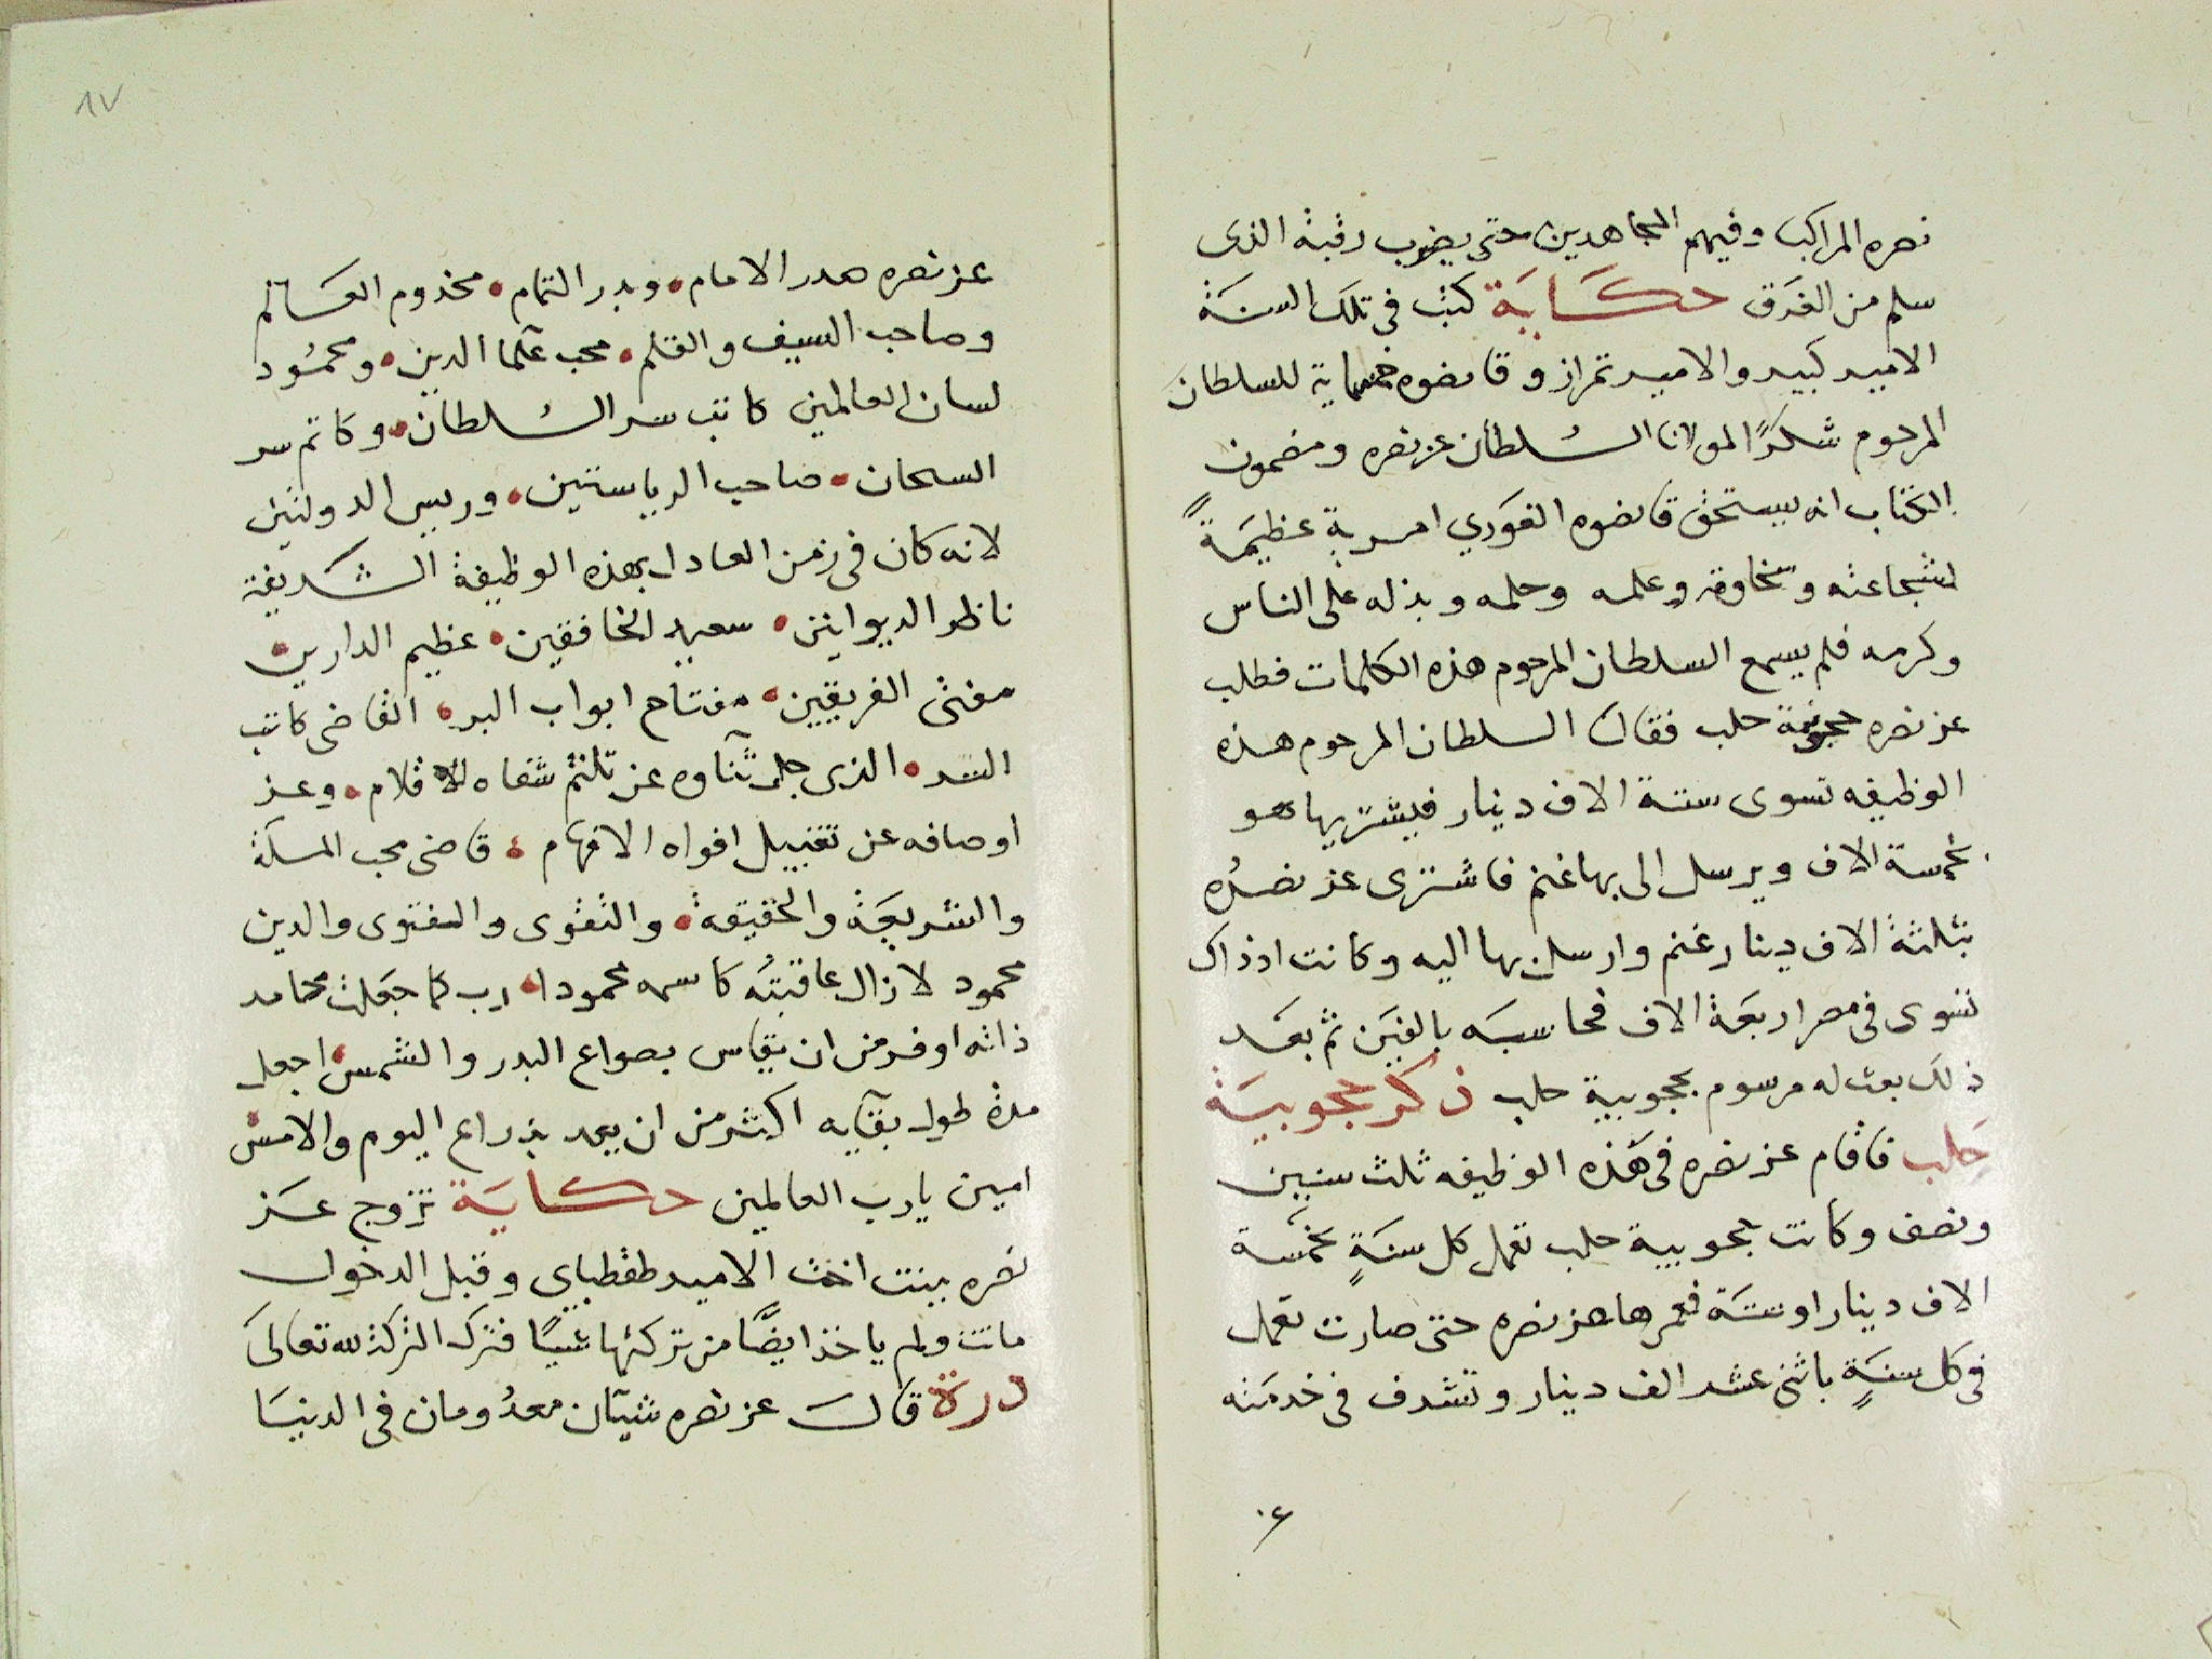 نصره المراكب وفيهم المجاهدين حتى يضرب رقبة الذى
سلم من الغرق حكاية كتب فى تلك السنة
الامير كبير والامير تمراز وقانصوه خمسماية للسلطان
المرحوم شكرًا لمولانا السلطان عز نصره ومضمون
الكتاب انه يستحق قانصوه الغوري امرية عظيمة
لشجاعته وسخاوته وعلمه وحلمه وبذله على الناس
وكرمه فلم يسمع السلطان المرحوم هذه الكلمات فطلب
عز نصره حجوبية حلب فقال السلطان المرحوم هذه
الوظيفه تسوى ستة الاف دينار فيشتريها هو
بخمسة الاف ويرسل الى بها غنم فاشترى عز نصره
بثلثة الاف دينار غنم وارسل بها اليه وكانت اذ ذاك
تسوى فى مصر اربعة الاف فحاسبه بالفين ثم بعد
ذلك بعث له مرسوم بحجوبية حلب ذكر حجوبية
حلب فاقام عز نصره فى هذه الوظيفه ثلث سنين
ونصف وكانت حجوبية حلب تعمل كل سنةٍ بخمسة
الاف دينار او ستة فعمرها عز نصره حتى صارت تعمل
فى كل سنةٍ باثنى عشر الف دينار وتشرف فى خدمته
٨٧
عز نصره صدر الامام • وبدر التمام • مخدوم العالم
وصاحب السيف والقلم • محب علما الدين • ومحمود
لسان العالمين كاتب سر السلطان • وكاتم سر
السحان • صاحب الرياستين • وريس الدولتين
لانه كان فى زمن العادل بهذه الوظيفة الشريفة
ناظر الديوانين • سعيد الخافقين • عظيم الدارين •
مفتى الفريقين • مفتاح ابواب البر • القاضى كاتب
السر • الذى جل ثنآوه عن تلثم شفاه الاقلام • وعز
اوصافه عن تقبيل افواه الافهام • قاضى محب المسلة
والشريعة والحقيقة • والتقوى والفتوى والدين
محمود لا زال عاقبته كاسمه محمودا • رب كما جعلت محامد
ذاته اوفر من ان يقاس بصواع البدر والشمس • اجعل
مدة طول بقآيه اكثر من ان يعد بذراع اليوم والامس •
امين يا رب العالمين حكاية تزوج عز
نصره ببنت اخت الامير طقطباى وقبل الدخول
ماتت ولم ياخذ ايضًا من تركتها شيئًا فترك التركة لله تعالى
درة قال عز نصره شيآن معدومان فى الدنيا